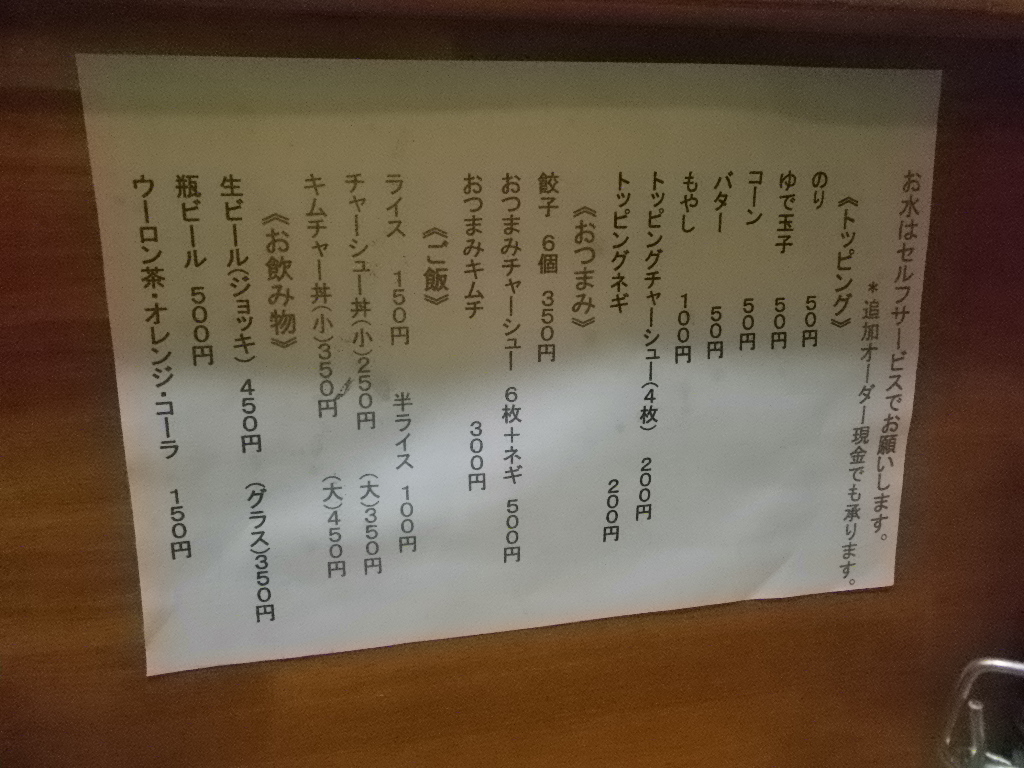 お水はセルフサービスでお願いします。
＊追加オーダー現金でも承ります。
《トッピング》
のり　５０円
ゆで玉子　５０円
コーン　５０円
バター　５０円
もやし　１００円
トッピングチャーシュー（４枚）　２００円
トッピングネギ　２００円
《おつまみ》
餃子　６個　３５０円
おつまみチャーシュー　６枚＋ネギ　５００円
おつまみキムチ　３００円
《ご飯》
ライス　１５０円　半ライス　１００円
チャーシュー丼（小）２５０円　（大）３５０円
キムチャー丼（小）３５０円　（大）４５０円
《お飲み物》
生ビール（ジョッキ）４５０円　（グラス）３５０円
瓶ビール　５００円
ウーロン茶・オレンジ・コーラ　１５０円